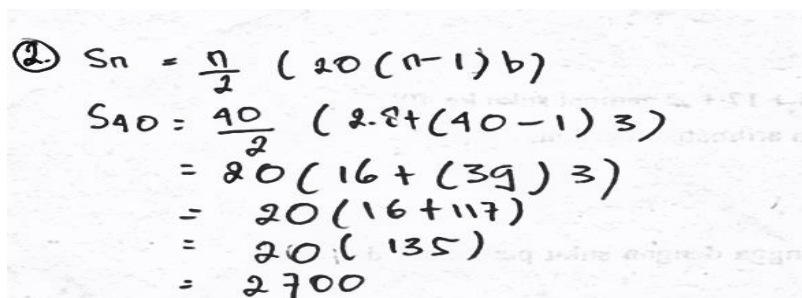 2. Sn = n/2 (20(n-1)b)
S40 = 40/2 (2.8+(40-1)3)
= 20(16+(39)3)
= 20(16+117)
= 20(135)
= 2700